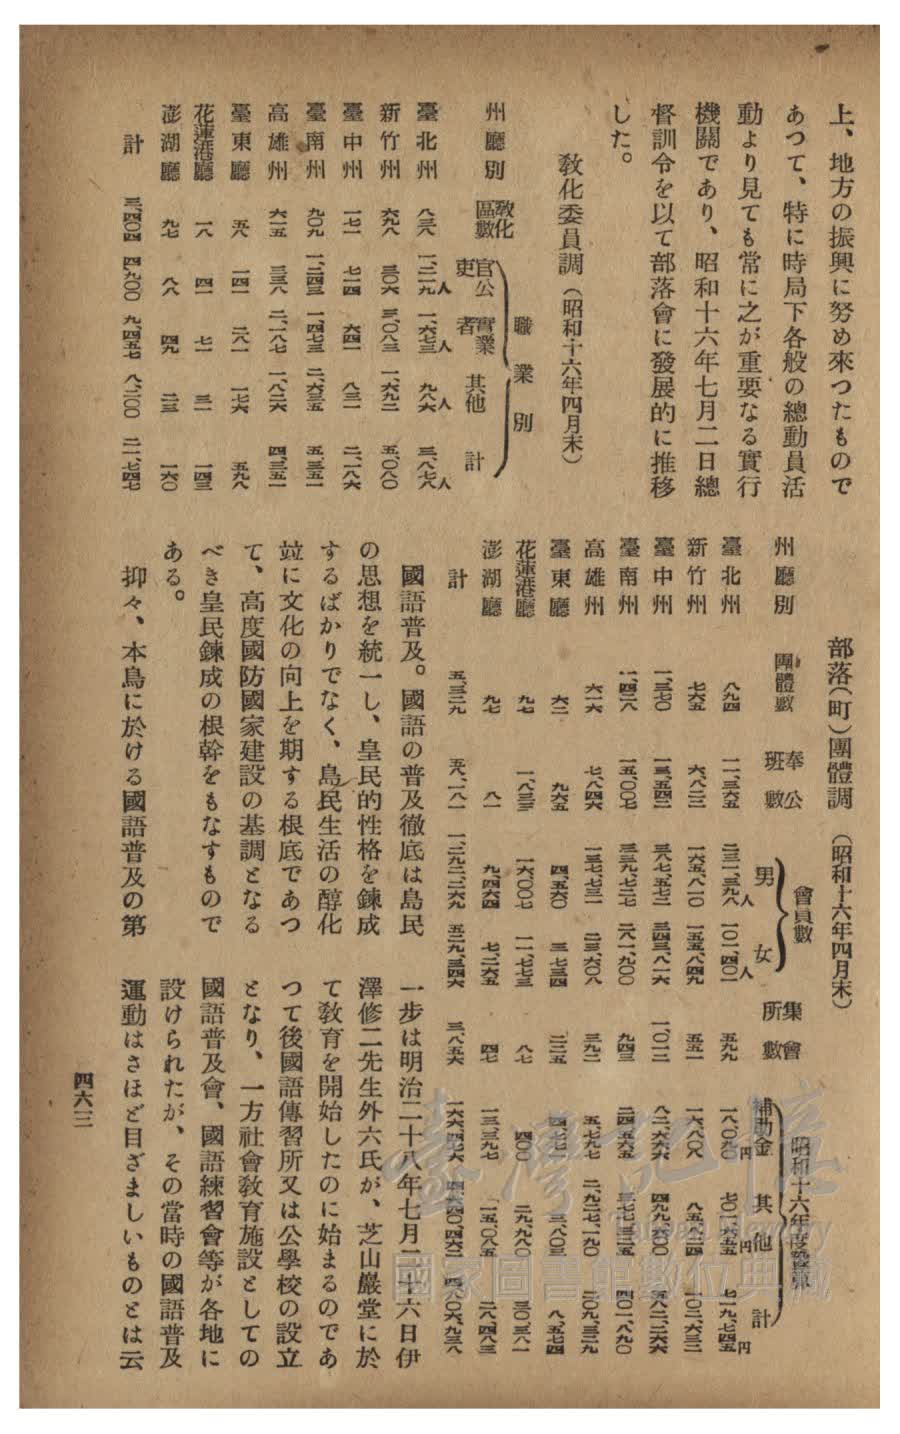 上、地方の振興に努め來つたもので
あつて、特に時局下各般の總動員活
動より見ても常に之が重要なる實行
機關であり、昭和十六年七月二日總
督訓令を以て部落會に發展的に推移
した。
敎化委員調（昭和十六年四月末）
州廳別 敎化區數 職業別 官公吏 實業者 其他 計
臺北州 八三八 一、二一九人 一、六七三人 九八六人 三、八七八人
新竹州 六九八 三〇六 三〇八三 一、六九二 五、〇八〇
臺中州 一七一 七一四 六四一 八三一 二、一八六
臺南州 九〇九 一、二四三 一四七三 二、六三五 五、三五一
高雄州 六一五 三三八 二、一八七 一、八二六 四、三五一
臺東廳 五八 一四一 二八一 一七六 五九八
花蓮港廳 一八 四一 七一 三一 一四三
澎湖廳 九七 八八 四九 二三 一六〇
計 三、四〇四 四、九〇〇 九、四五七 八、二〇〇 二一、七四七
部落（町）團體調（昭和十六年四月末）
州廳別 團體數 奉公班數 會員數 男 女 集會所數 昭和十六年度豫算 補助金 其他 計
臺北州 八九四 一一、三六五 二三一、三九八人 一〇一、四〇一人 五九九 一八、〇九〇円 七〇一、六五五円 七一九、七四五円
新竹州 七六五 六、八二三 一六五、八一〇 一五五、八四九 五五一 一六、八〇八 八五、八二四 一〇二、六三二
臺中州 一、三七〇 一三、五四二 三八七、五七二 二四三、八一六 一、〇一二 八二、六六六 四九九、六〇〇 五八二、二六六
臺南州 一、四二八 一五、〇〇七 三三九、七二七 二八一、九〇〇 九四三 二四、五六五 三七七、三二五 四〇一、八九〇
高雄州 六一六 七、八四六 一三七、七三一 二三、六〇八 三九二 五、七九七 二、九二七、一九〇 二〇九、三二九
臺東廳 六二 九六五 四、五六〇 三、七三四 二二五 四、七七一 三、八〇三 八、五七四
花蓮港廳 九七 一、八三三 一六、〇〇七 一一、七七三 八七 四〇〇 二九、九八〇 三〇、三八一
澎湖廳 九七 八一 九、四六四 七、二六五 四七 一三、三九七 一五、〇八五 二八、四八三
計 五、三二九 五八、一八一 一、二九二、二六九 五二九、三四六 三、八五六
國語普及。國語の普及徹底は島民
の思想を統一し、皇民的性格を鍊成
するばかりでなく、島民生活の醇化
竝に文化の向上を期する根底であつ
て、高度國防國家建設の基調となる
べき皇民鍊成の根幹をもなすもので
ある。
抑々、本島に於ける國語普及の第
一步は明治二十八年七月二十六日伊
澤修二先生外六氏が、芝山巖堂に於
て敎育を開始したのに始まるのであ
つて後國語傳習所又は公學校の設立
となり、一方社會敎育施設としての
國語普及會、國語練習會等が各地に
設けられたが、その當時の國語普及
運動はさほど目ざましいものとは云
四六三
臺灣記憶
Taiwan Memory
國家圖書館數位典藏